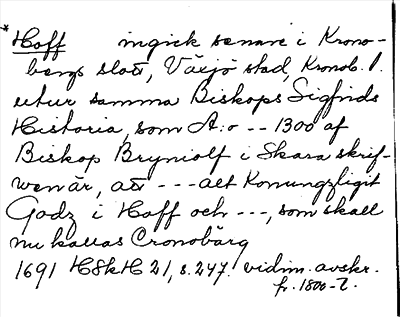 * Hoff ingick senare i Krono-
bergs slott, Växjö stad, Kronob. l.
utur samma Biskops Sigfrids
Historia, som A:o -- 1300 af
Biskop Bryniolf i Skara skrif-
wen är, att --- alt Konungzligit
Godz i Hoff och ---, som skall
nu kallas Cronobärg
1691 HSkH 21, s. 247. vidim. avskr.
fr. 1800-t.